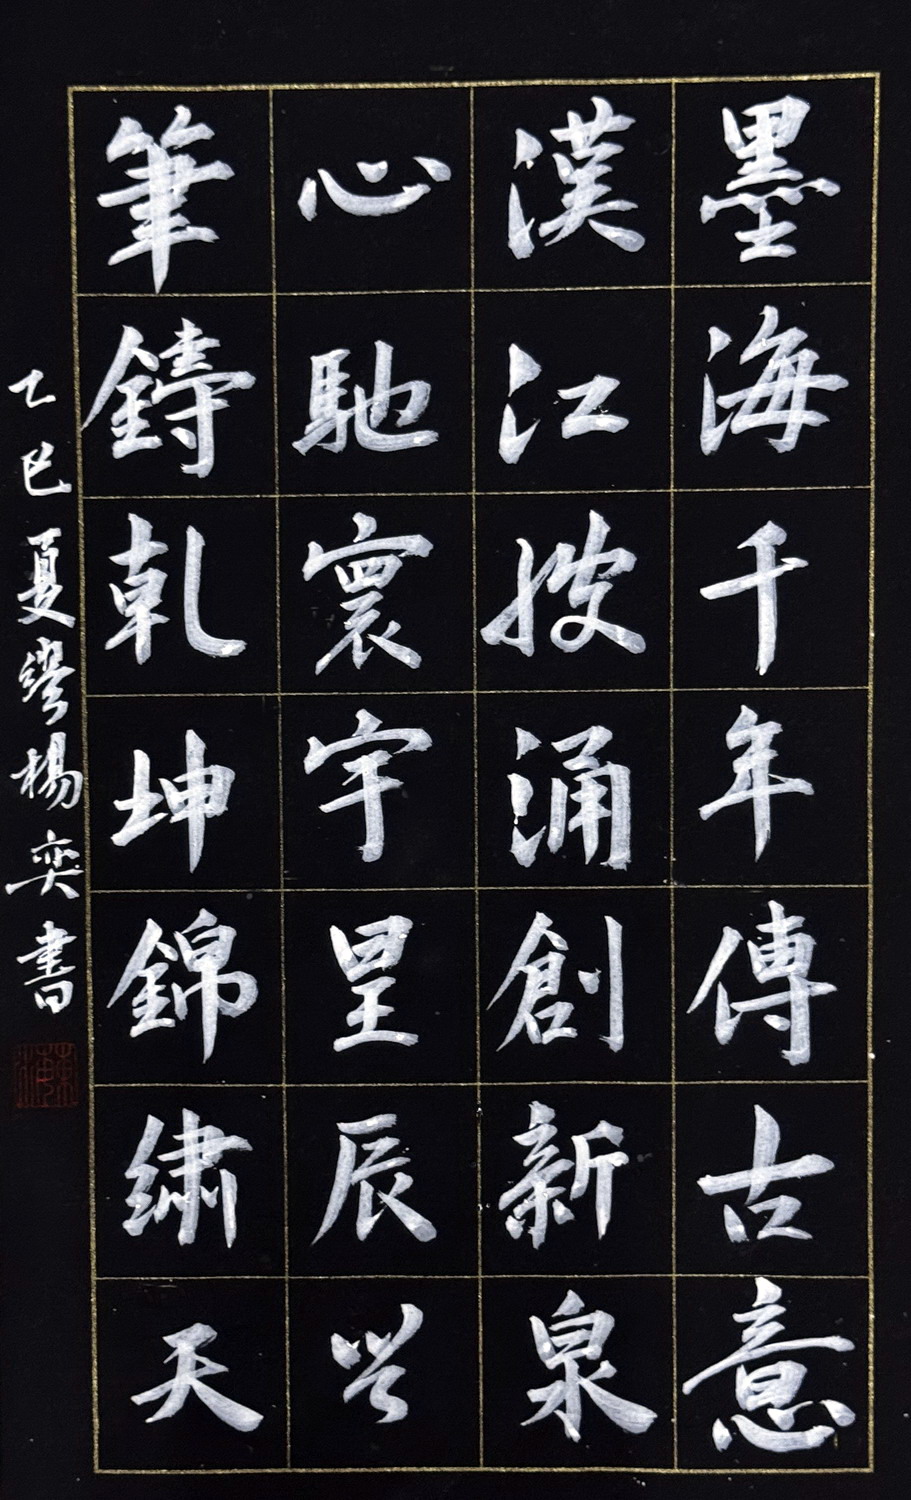 墨海千年傳古意
漢江涌創新泉
心馳寰宇星辰
筆鑄乾坤錦繡天
乙巳夏繆楊奕書